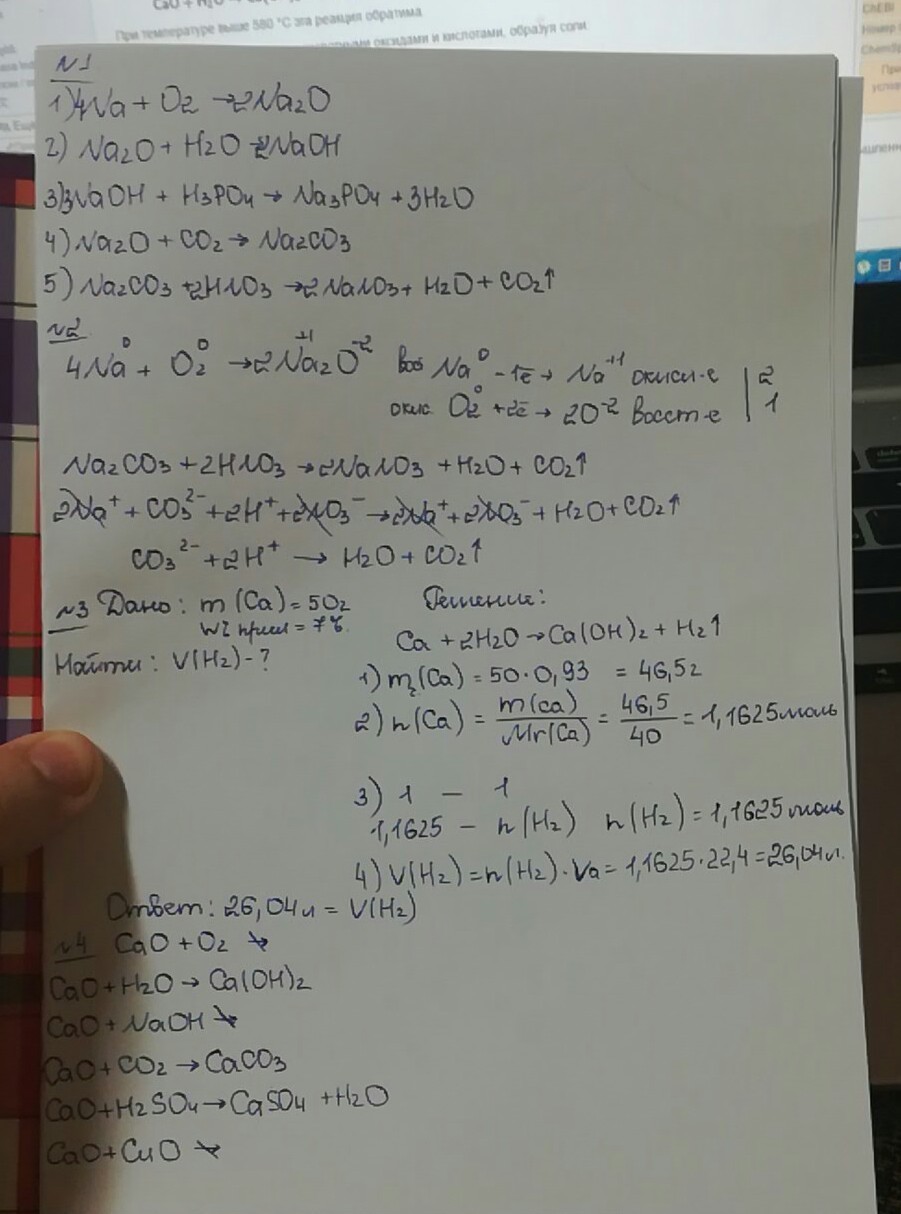 CaO + H₂O
При температуре выше 580 °C эта реакция обратима.
оксидами и кислотами, образуя соли.
ChEBI
N1
1) 4Na + O₂ → 2Na₂O
2) Na₂O + H₂O → 2NaOH
3) 3NaOH + H₃PO₄ → Na₃PO₄ + 3H₂O
4) Na₂O + CO₂ → Na₂CO₃
5) Na₂CO₃ + 2HNO₃ → 2NaNO₃ + H₂O + CO₂↑
N2
4Na⁰ + O₂⁰ → 2Na₂⁺¹O⁻² Вос Na⁰ - 1e̅ → Na⁺¹ окисл-е | 2
окис. O₂⁰ + 2e̅ → 2O⁻² Восст-е | 1
Na₂CO₃ + 2HNO₃ → 2NaNO₃ + H₂O + CO₂↑
2Na⁺ + CO₃²⁻ + 2H⁺ + 2NO₃⁻ → 2Na⁺ + 2NO₃⁻ + H₂O + CO₂↑
CO₃²⁻ + 2H⁺ → H₂O + CO₂↑
N3 Дано: m(Ca) = 50г
W прим = 7%
Найти: V(H₂) - ?
Решение:
Ca + 2H₂O → Ca(OH)₂ + H₂↑
1) m(Ca) = 50·0,93 = 46,5г
2) n(Ca) = m(Ca)/Mr(Ca) = 46,5/40 = 1,1625моль
3) 1 - 1
1,1625 - n(H₂) n(H₂) = 1,1625моль
4) V(H₂) = n(H₂)·Va = 1,1625·22,4 = 26,04л.
Ответ: 26,04л = V(H₂)
N4 CaO + O₂ ↛
CaO + H₂O → Ca(OH)₂
CaO + NaOH ↛
CaO + CO₂ → CaCO₃
CaO + H₂SO₄ → CaSO₄ + H₂O
CaO + CuO ↛